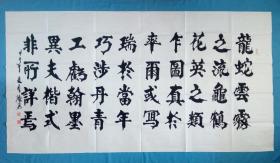 龍蛇雲露
之流龜鶴
花英之類
乍圖真於
率爾或寫
瑞於當年
巧涉丹青
工虧翰墨
異夫楷式
非所詳焉